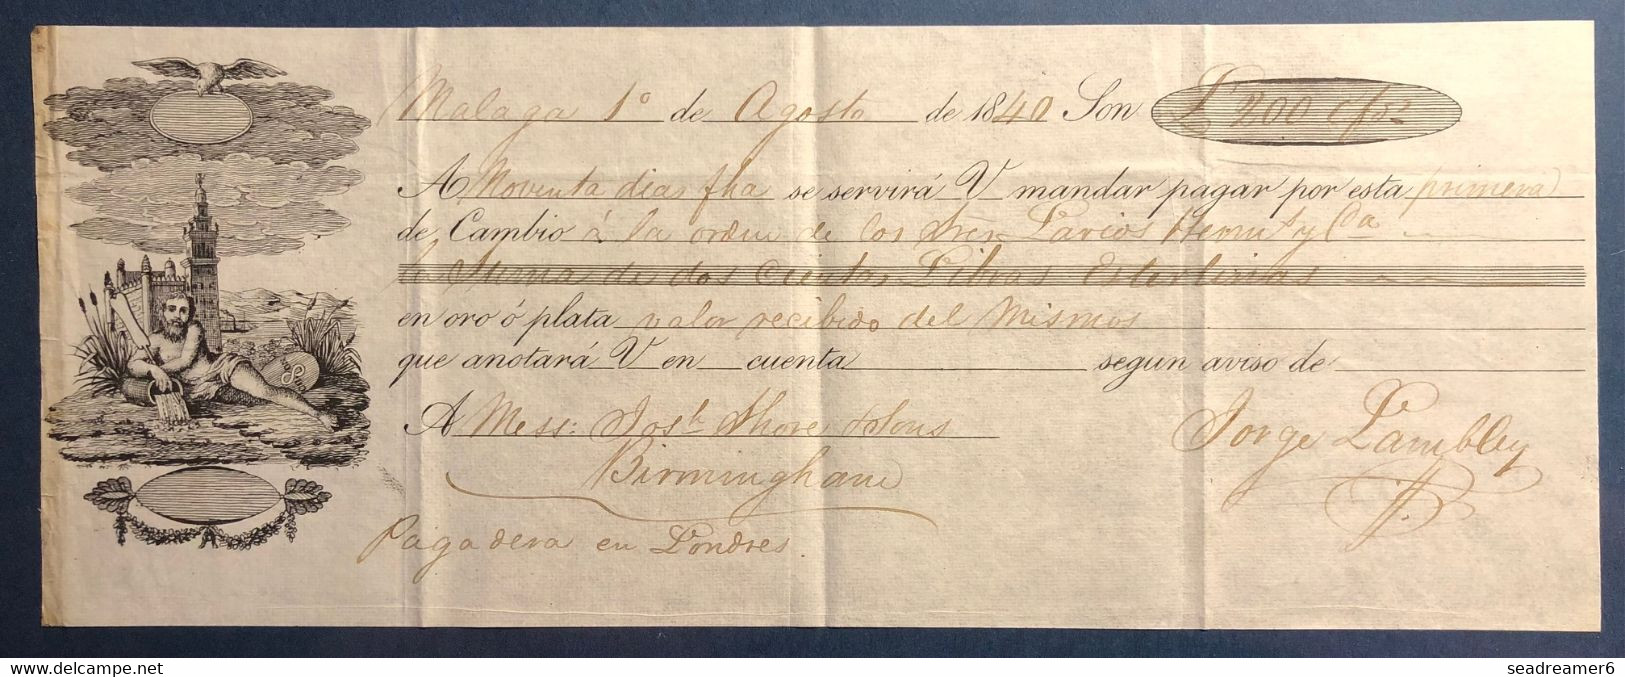 Malaga 1º de Agosto de 1840 Son £ 200
A Noventa dias fha se servirá V mandar pagar por esta primera
de Cambio á la orden de los Sres Larios Herms y Cia
la Suma de dos Cientos Libras Esterlinas
en oro ó plata valor recibido del Mismos
que anotará V en cuenta segun aviso de
A Mess: Josh Shore & Sons
Birmingham
Jorge Lambley
Pagadera en Londres.
delcampe.net
seadreamer6